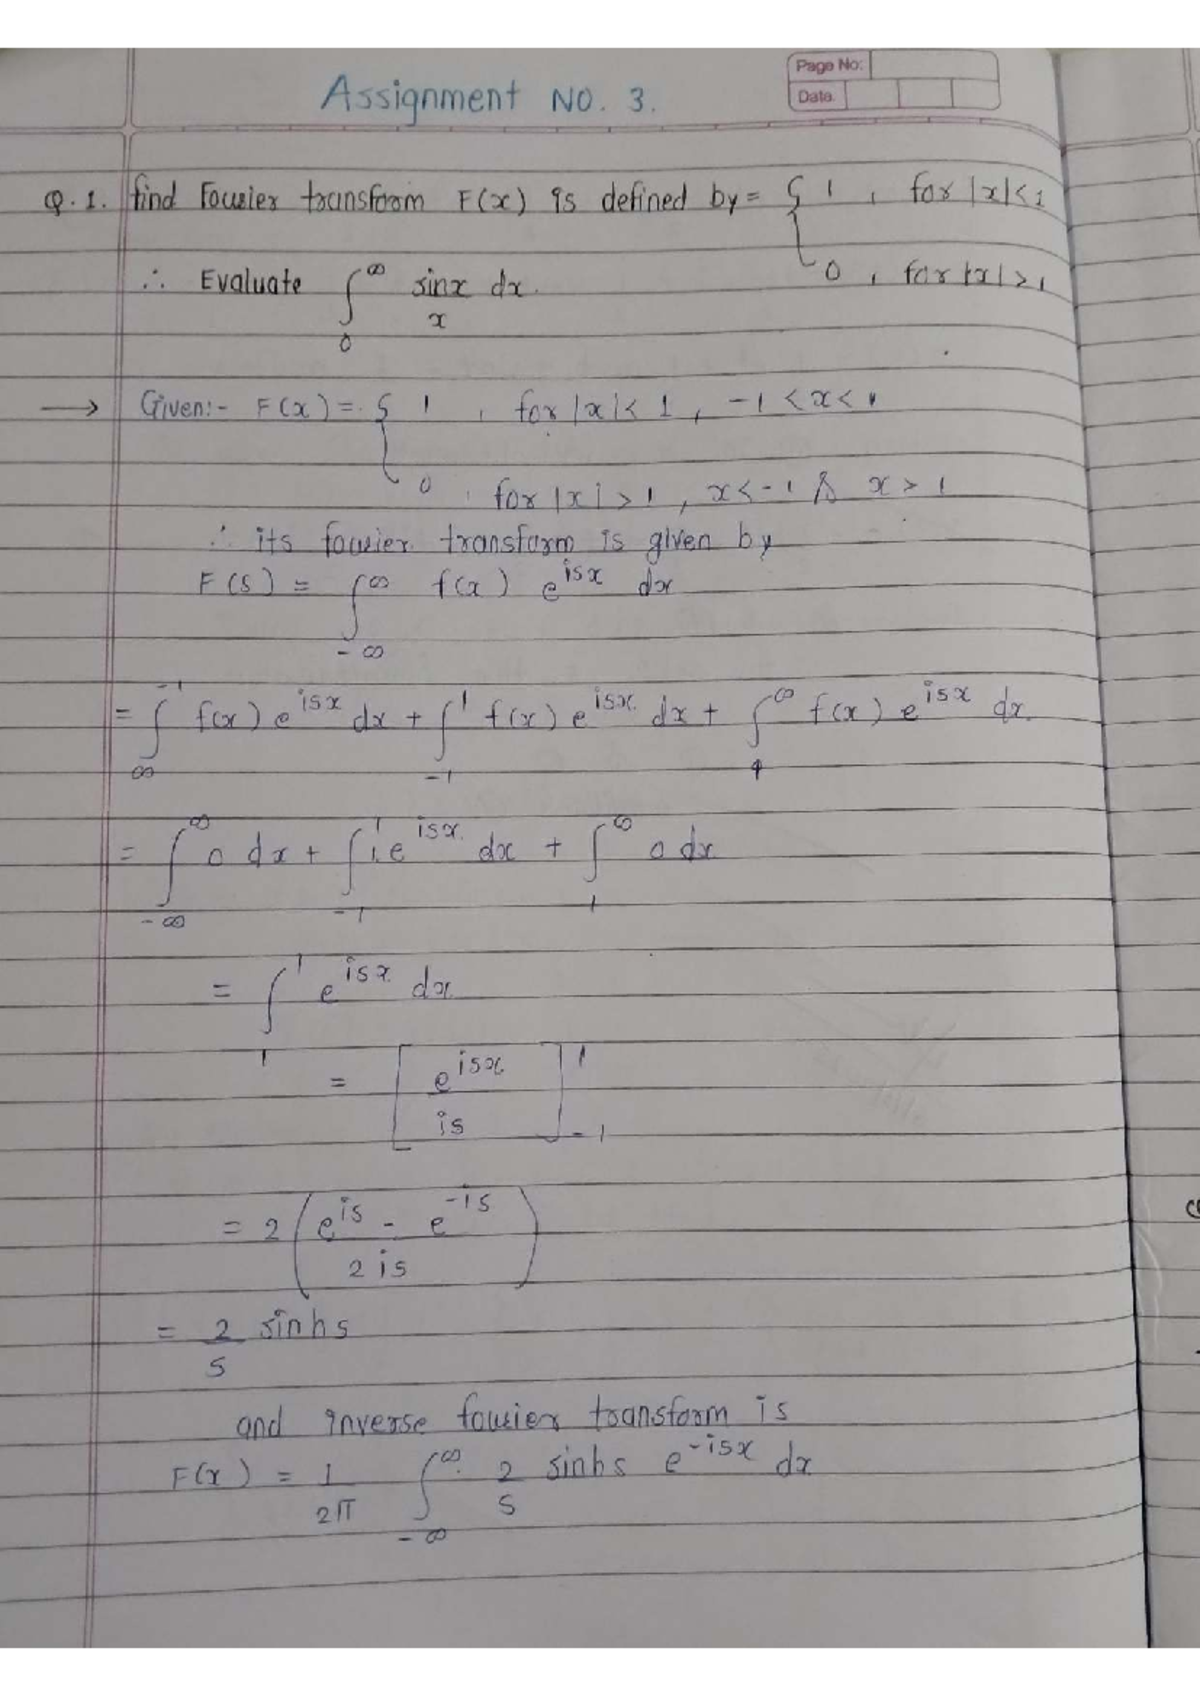 Assignment NO. 3.
Page No:
Date
Q.1. find Fourier transform F(x) is defined by = { 1 , for |x|<1
0 , for |x|>1
∴ Evaluate ∫₀^∞ sinx/x dx.
→ Given:- F(x) = { 1 , for |x|<1 , -1<x<1
0 , for |x|>1 , x<-1 & x>1
∴ its fourier transform is given by
F(s) = ∫_{-∞}^{∞} f(x) e^{isx} dx
= ∫_{∞}^{-1} f(x) e^{isx} dx + ∫_{-1}^{1} f(x) e^{isx} dx + ∫_{1}^{∞} f(x) e^{isx} dx
= ∫_{-∞}^{∞} 0 dx + ∫_{-1}^{1} 1.e^{isx} dx + ∫_{1}^{∞} 0 dx
= ∫_{1}^{1} e^{isx} dx
= [e^{isx}/is]_{-1}^{1}
= 2 (e^{is} - e^{-is} / 2is)
= 2/s sinhs
and inverse fourier transform is
F(x) = 1/2π ∫_{-∞}^{∞} 2/s sinhs e^{-isx} dx